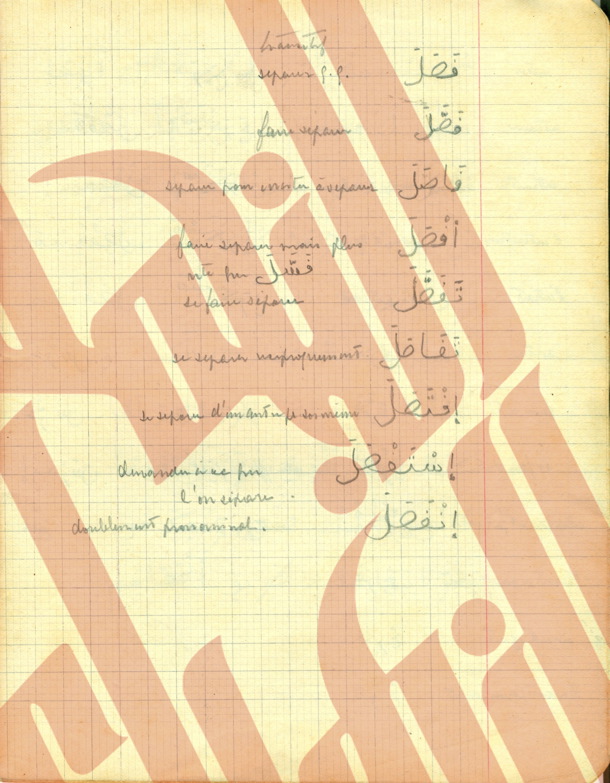 transitif
séparer q.q. فَصَلَ
faire séparer فَصَّلَ
séparer pour inviter à séparer فَاصَلَ
faire séparer mais plus أَفْصَلَ
vite que فَصَّلَ
se faire séparer تَفَصَّلَ
se séparer réciproquement تَفَاصَلَ
se séparer d'un autre par soi même إِفْتَصَلَ
demander à ce que إِسْتَفْصَلَ
l'on sépare.
doublement pronominal. إِنْفَصَلَ